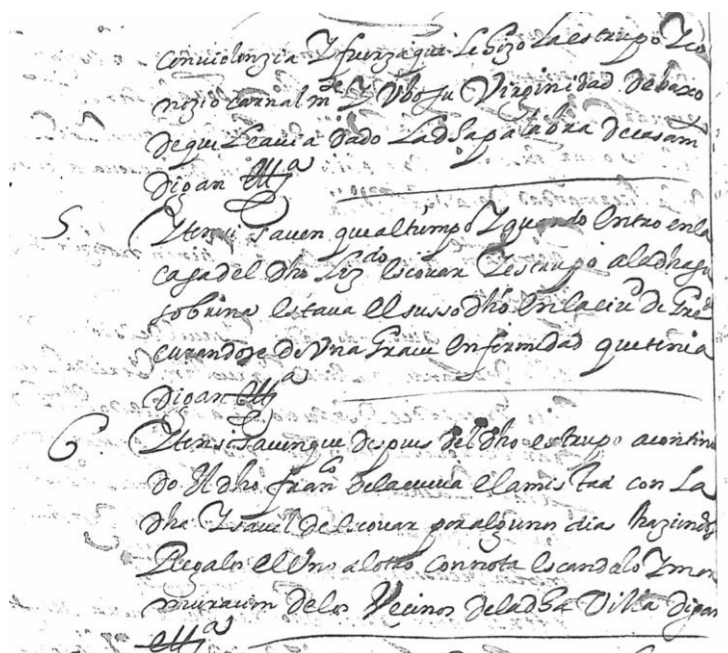 conuiolenzia Y fuerza que le hizo la estrupo Y co
nozio carnalmte Y Ubo su Virginidad debaxo
de que le auia dado la dha palabra de casam
digan &a
5. Yten si sauen que al tiempo Y quando entro en la
casa del dho Lizdo escouar Y estrupo a la dha su
sobrina estaua el susso dho en la ciud de Gra
curandose de Una graue enfermedad que tenia
digan &a
6. Yten si sauen que despues del dho estrupo a contin
do el dho franco de la cueua el amistad con La
dha Ysauel de escouar por algunos dias haziendos
Regalos el Uno al otro con nota escandalo Y mor
muracion de los Vecinos de la dha Villa digan
&a